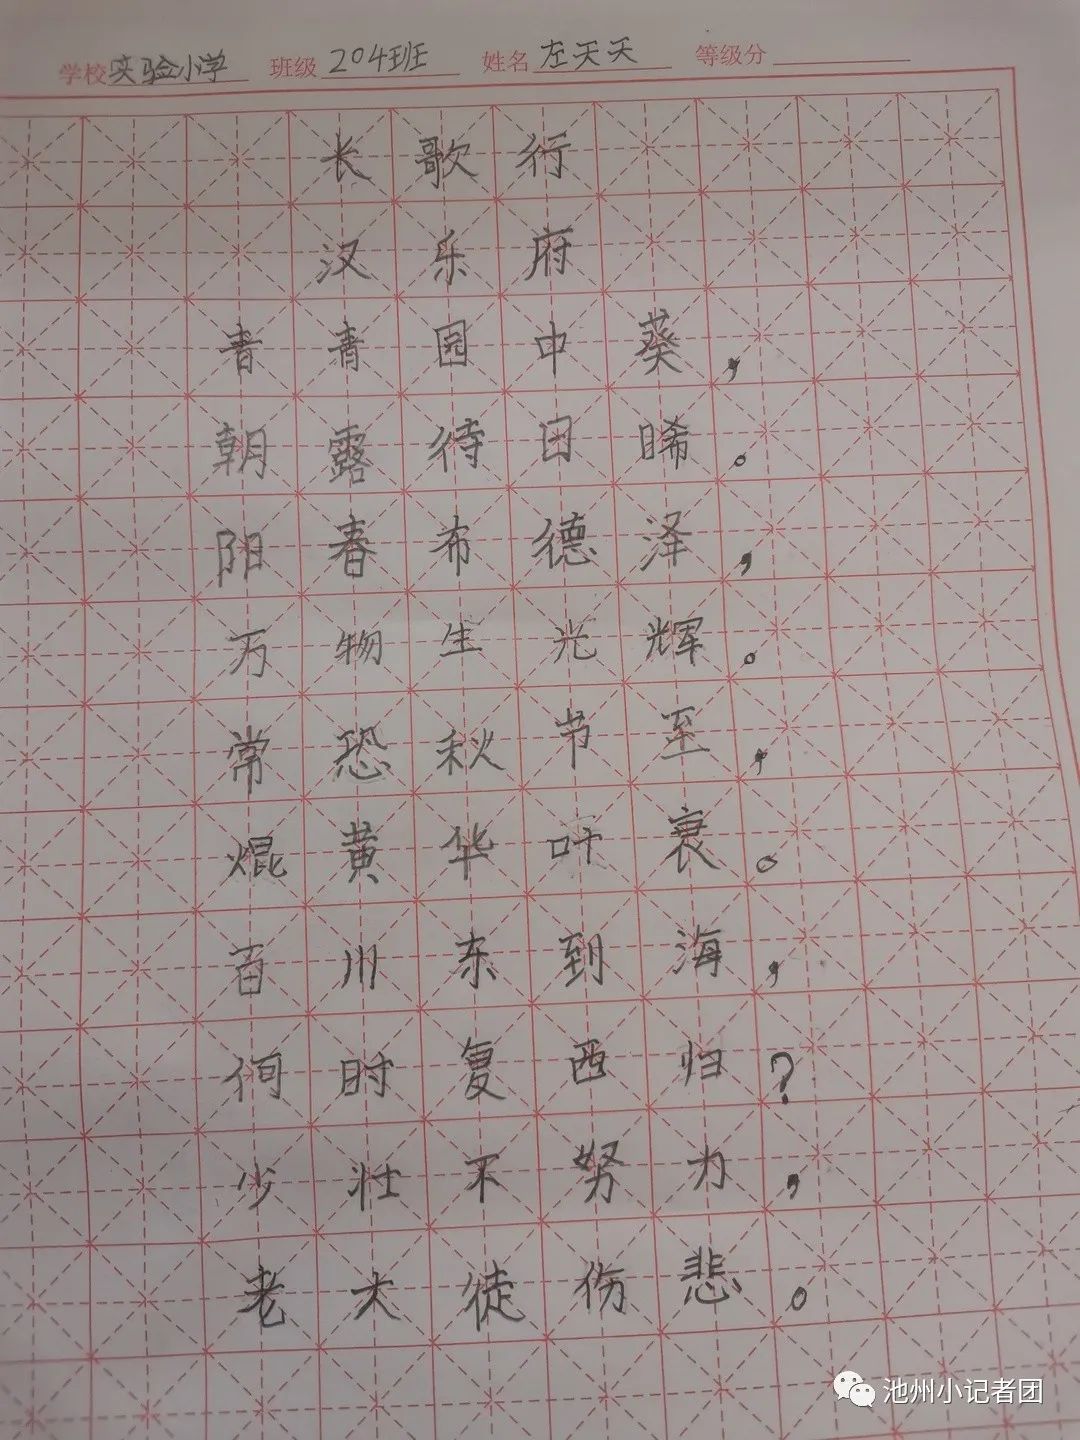 学校实验小学 班级204班 姓名左天天 等级分
长歌行
汉乐府
青青园中葵，
朝露待日晞。
阳春布德泽，
万物生光辉。
常恐秋节至，
焜黄华叶衰。
百川东到海，
何时复西归？
少壮不努力，
老大徒伤悲。
池州小记者团